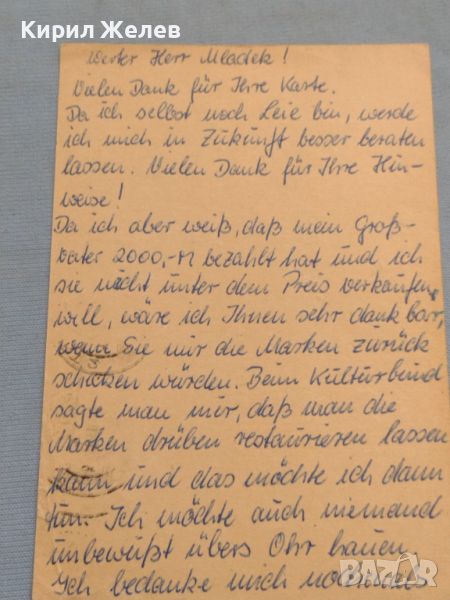 Кирил Желев
Werter Herr Mladek!
Vielen Dank für Ihre Karte.
Da ich selbst noch Leie bin, werde
ich mich in Zukunft besser beraten
lassen. Vielen Dank für Ihre Hin-
weise!
Da ich aber weiß, daß mein Groß-
vater 2000,-M bezahlt hat und ich
sie nicht unter dem Preis verkaufen
will, wäre ich Ihnen sehr dankbar,
wenn Sie mir die Marken zurück
schicken würden. Beim Kulturbund
sagte man mir, daß man die
Marken drüben restaurieren lassen
kann und das möchte ich dann
tun. Ich möchte auch niemand
unbewußt übers Ohr hauen.
Ich bedanke mich nochmals
BAZAR.bg